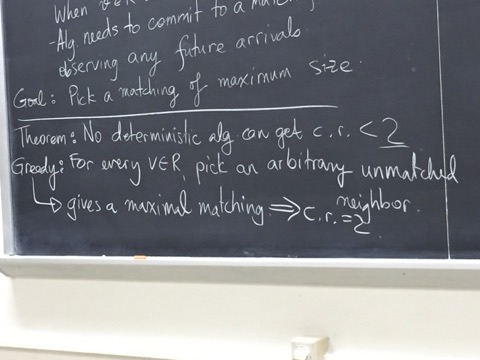 When
Alg. needs to commit to a matching
observing any future arrivals
Goal: Pick a matching of maximum size.
Theorem: No deterministic alg can get c.r. < 2
Gready: For every v∈R, pick an arbitrary unmatched
neighbor.
↳ gives a maximal matching ⇒ c.r. = 2